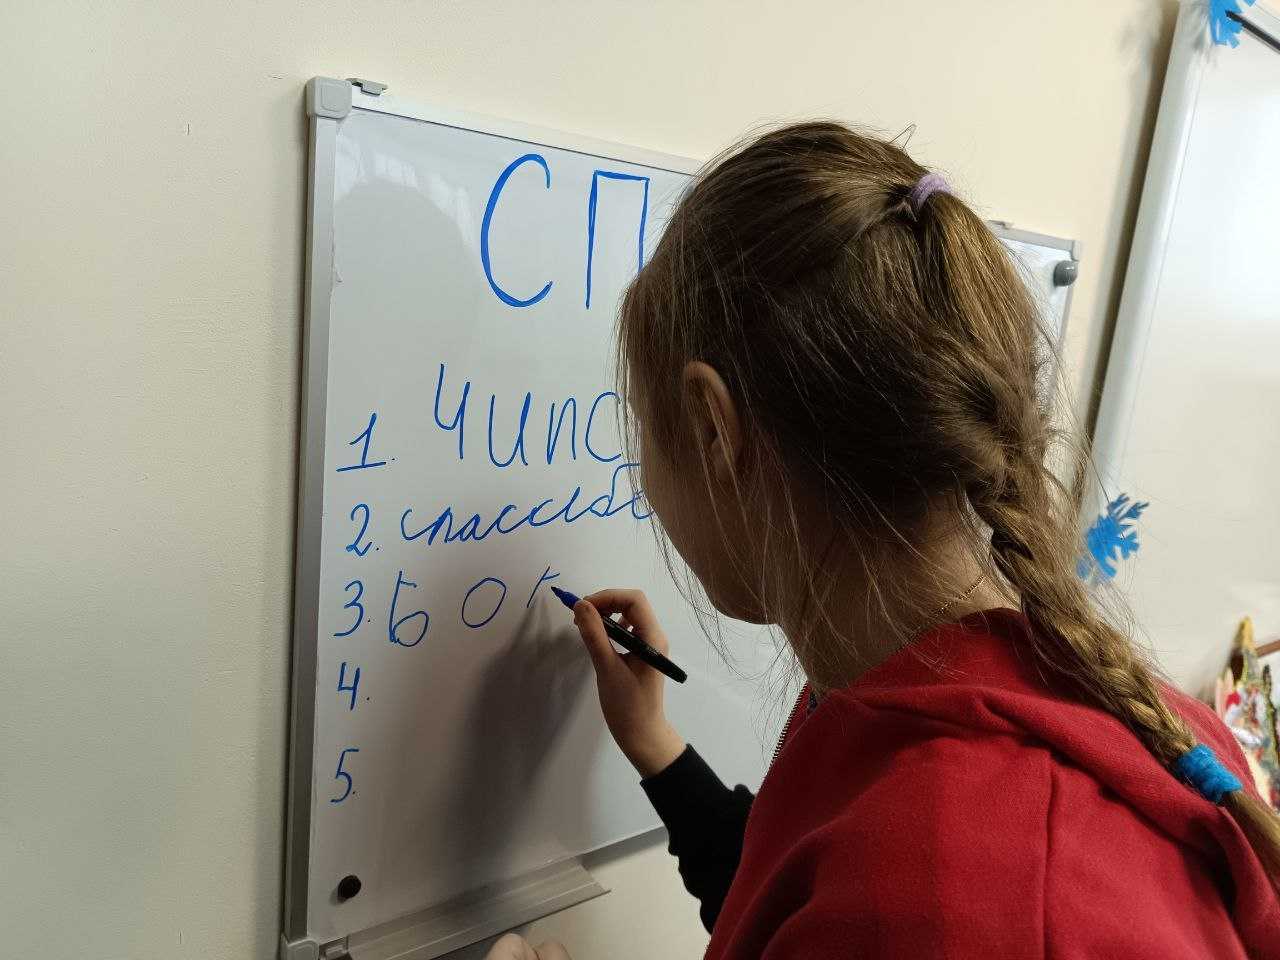 СП
1. Чипс
2. спассебо
3. Бо
4.
5.